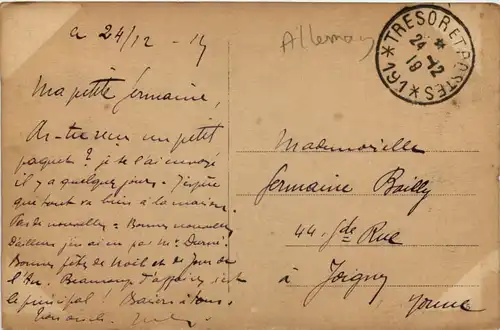 le 24/12 - 19
Allemag
* TRESOR ET POSTES * 191 *
24 - 12
19
Ma petite Germaine,
As-tu reçu un petit
paquet ? je te l'ai envoyé
il y a quelques jours. J'espère
que tout va bien à la maison.
Pas de nouvelles = Bonnes nouvelles
D'ailleurs j'en ai eu par Mr.
Bonnes fêtes de Noël et de Jour de
l'An. Beaucoup d'affaires, c'est
le principal ! Baisers à tous.
Mademoiselle
Germaine Bailly
44 Gde Rue
à Joigny
Yonne